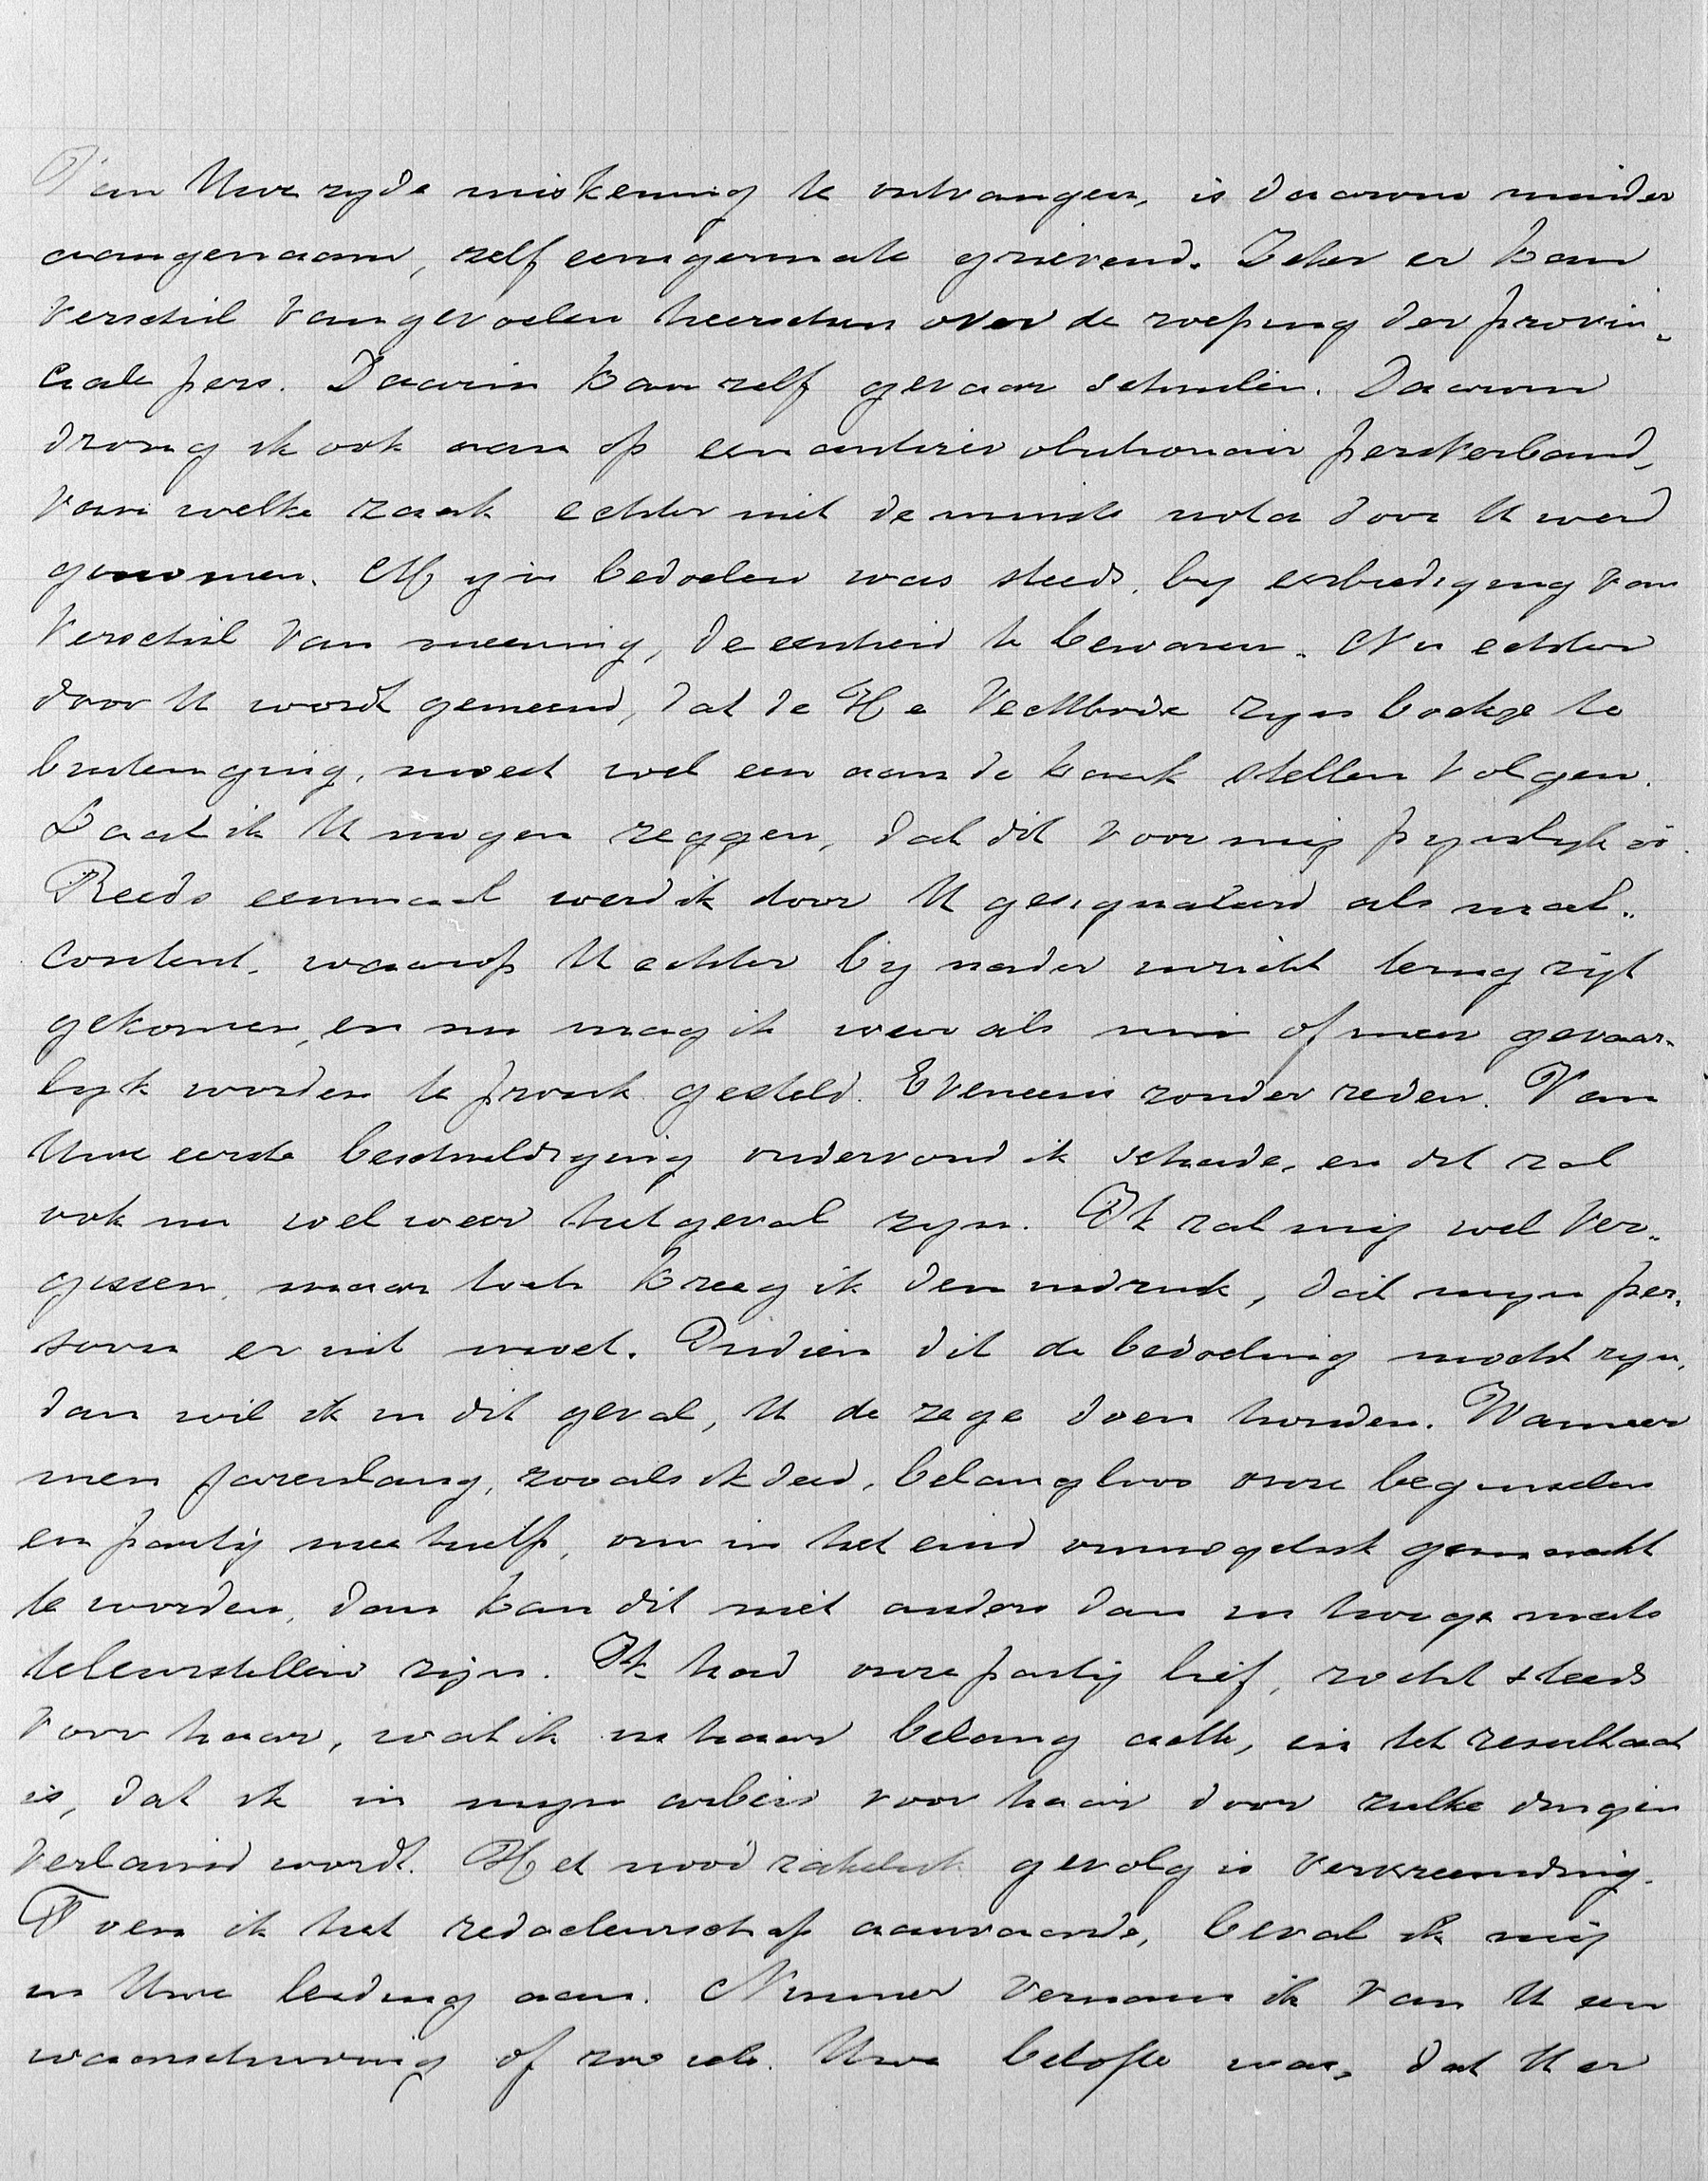 Van Uwe zyde miskenning te ontvangen, is daarom minder
aangenaam, zelf eenigermate grievend. Zeker er kan
verschil van gevoelen heerschen over de roeping der provin-
ciale pers. Daarin kan zelf gevaar schuilen. Daarom
drong ik ook aan op een antirevolutionair persverband,
van welke zaak echter niet de minste nota door U werd
genomen. Mijn bedoelen was steeds, by eerbiediging van
verschil van meening, de eenheid te bewaren. Nu echter
door U wordt gemeend, dat de He Vechtbode zyn boekje te
buiten ging, moest wel een aan de kaak stellen volgen.
Laat ik U mogen zeggen, dat dit voor mij pynlyk is.
Reeds eenmaal werd ik door U gesignaleerd als mal-
content, waarop U echter by nader inzicht terug zijt
gekomen, en nu mag ik weer als min of meer gevaar-
lyk worden te pronk gesteld. Eveneens zonder reden. Van
Uwe eerste beschuldiging ondervond ik schade, en dit zal
ook nu wel weer het geval zyn. Ik zal mij wel ver-
gissen, maar toch kreeg ik den indruk, dat myn per-
soon er uit moet. Indien dit de bedoeling mocht zyn,
dan wil ik in dit geval, U de zege doen houden. Wanneer
men jarenlang, zooals ik deed, belangloos onze beginselen
en partij mee hielp, om in het eind onmogelijk gemaakt
te worden, dan kan dit niet anders dan in hooge mate
teleurstellend zijn. Ik had onze partij lief, zocht steeds
voor haar, wat ik in haar belang achtte, en het resultaat
is, dat ik in myn arbeid voor haar door zulke dingen
verlamd wordt. Het noodzakelijk gevolg is vervreemding.
Toen ik het redacteurschap aanvaardde, beval ik mij
in Uwe leiding aan. Nimmer vernam ik van U een
waarschuwing of zoo iets. Uwe belofte was, dat U er